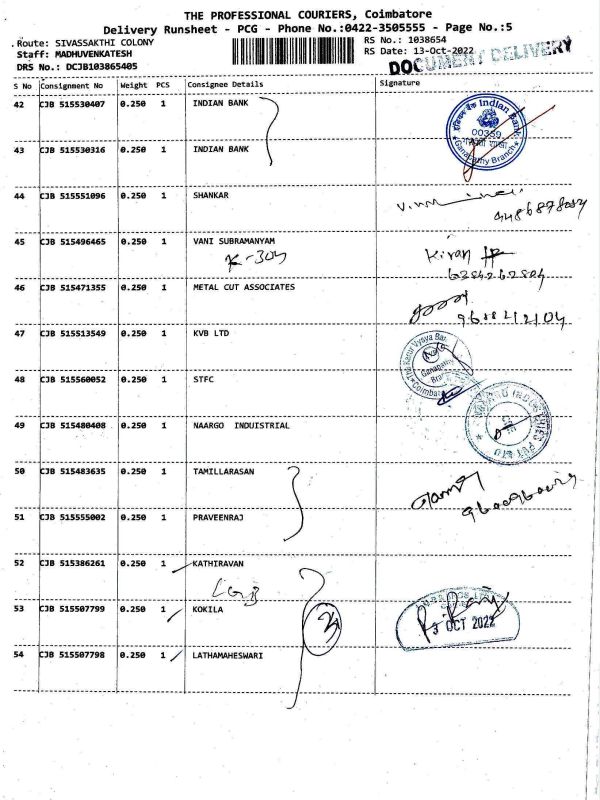 THE PROFESSIONAL COURIERS, Coimbatore
Delivery Runsheet - PCG - Phone No.:0422-3505555 - Page No.:5
Route: SIVASSAKTHI COLONY
Staff: MADHUVENKATESH
DRS No.: DCJB103865405
RS No.: 1038654
RS Date: 13-Oct-2022
DOCUMENT DELIVERY
S No Consignment No Weight PCS Consignee Details Signature
42 CJB 515530407 0.250 1 INDIAN BANK
Indian Bank
00359
Ganapathy Branch
43 CJB 515530316 0.250 1 INDIAN BANK
44 CJB 515551096 0.250 1 SHANKAR
45 CJB 515496465 0.250 1 VANI SUBRAMANYAM
K-304
Kiran
46 CJB 515471355 0.250 1 METAL CUT ASSOCIATES
47 CJB 515513549 0.250 1 KVB LTD
The Karur Vysya Ban
Ganapathy
Bran
Coimbat
48 CJB 515560052 0.250 1 STFC
49 CJB 515480408 0.250 1 NAARGO INDUISTRIAL
INDUSTRIES PVT LTD
50 CJB 515483635 0.250 1 TAMILLARASAN
51 CJB 515555002 0.250 1 PRAVEENRAJ
52 CJB 515386261 0.250 1 KATHIRAVAN
LGB
53 CJB 515507799 0.250 1 KOKILA
3
3 OCT 2022
54 CJB 515507798 0.250 1 LATHAMAHESWARI